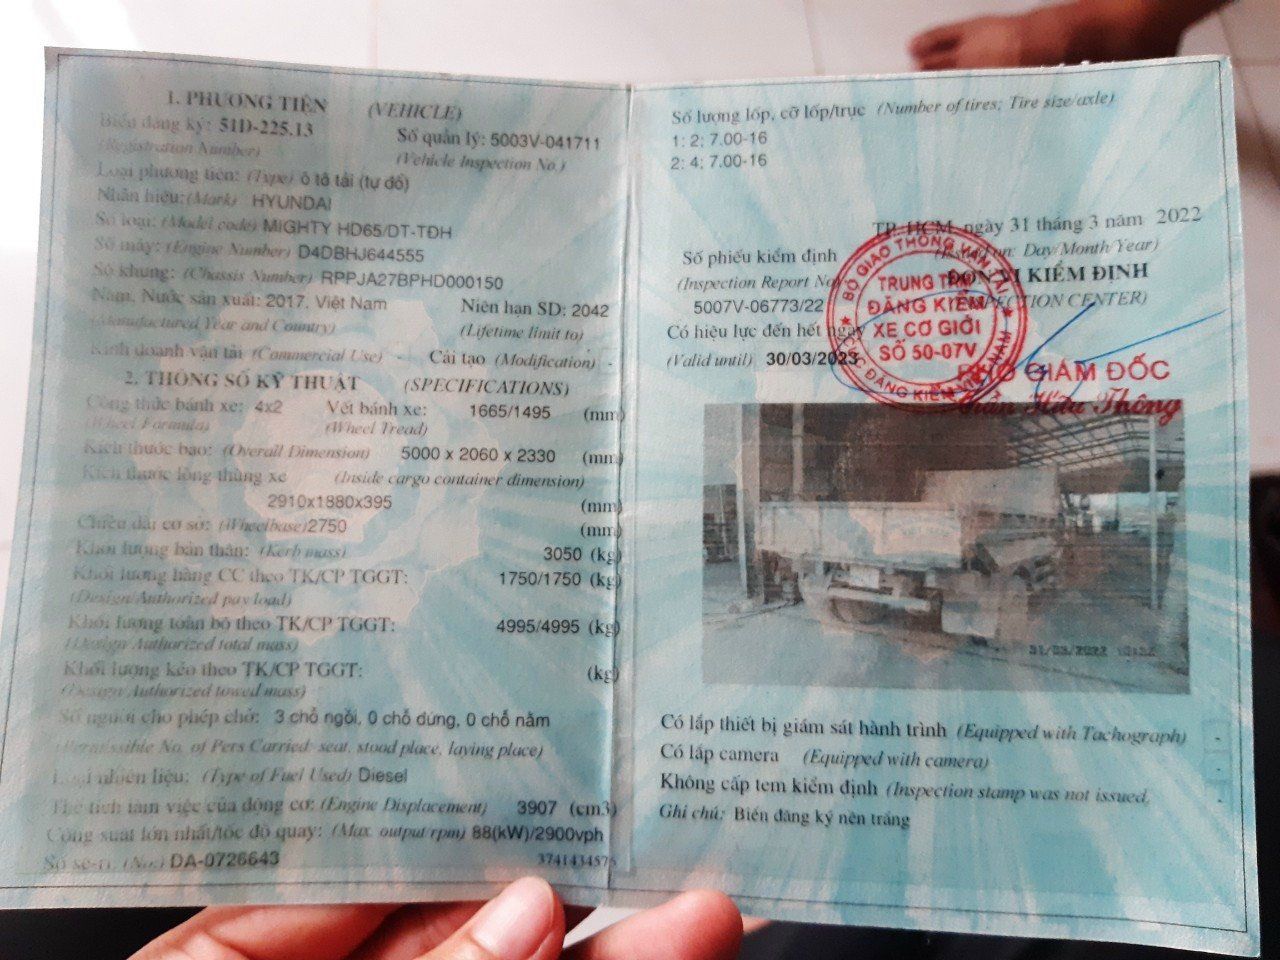 1. PHƯƠNG TIỆN (VEHICLE)
Biển đăng ký: 51D-225.13 Số quản lý: 5003V-041711
(Registration Number) (Vehicle Inspection No.)
Loại phương tiện: (Type) ô tô tải (tự đổ)
Nhãn hiệu: (Mark) HYUNDAI
Số loại: (Model code) MIGHTY HD65/DT-TĐH
Số máy: (Engine Number) D4DBHJ644555
Số khung: (Chassis Number) RPPJA27BPHD000150
Năm, Nước sản xuất: 2017, Việt Nam Niên hạn SD: 2042
(Manufactured Year and Country) (Lifetime limit to)
Kinh doanh vận tải (Commercial Use) - Cải tạo (Modification) -
2. THÔNG SỐ KỸ THUẬT (SPECIFICATIONS)
Công thức bánh xe: 4x2 Vết bánh xe: 1665/1495 (mm)
(Wheel Formula) (Wheel Tread)
Kích thước bao: (Overall Dimension) 5000 x 2060 x 2330 (mm)
Kích thước lòng thùng xe (Inside cargo container dimension)
2910x1880x395 (mm)
Chiều dài cơ sở: (Wheelbase) 2750 (mm)
Khối lượng bản thân: (Kerb mass) 3050 (kg)
Khối lượng hàng CC theo TK/CP TGGT: 1750/1750 (kg)
(Design/Authorized pay load)
Khối lượng toàn bộ theo TK/CP TGGT: 4995/4995 (kg)
(Design/Authorized total mass)
Khối lượng kéo theo TK/CP TGGT: (kg)
(Design/Authorized towed mass)
Số người cho phép chở: 3 chỗ ngồi, 0 chỗ đứng, 0 chỗ nằm
(Permissible No. of Pers Carried: seat, stood place, laying place)
Loại nhiên liệu: (Type of Fuel Used) Diesel
Thể tích làm việc của động cơ: (Engine Displacement) 3907 (cm3)
Công suất lớn nhất/tốc độ quay: (Max. output/rpm) 88(kW)/2900vph
Số sê-ri: (No.) DA-0726643 3741434575
Số lượng lốp, cỡ lốp/trục (Number of tires; Tire size/axle)
1: 2; 7.00-16
2: 4; 7.00-16
TP. HCM, ngày 31 tháng 3 năm 2022
(Issued on: Day/Month/Year)
Số phiếu kiểm định ĐƠN VỊ KIỂM ĐỊNH
(Inspection Report No) (INSPECTION CENTER)
5007V-06773/22
Có hiệu lực đến hết ngày
(Valid until) 30/03/2023
BỘ GIAO THÔNG VẬN TẢI
TRUNG TÂM
ĐĂNG KIỂM
XE CƠ GIỚI
SỐ 50-07V
CỤC ĐĂNG KIỂM VIỆT NAM
PHÓ GIÁM ĐỐC
Trần Hữu Thông
31/03/2022
Có lắp thiết bị giám sát hành trình (Equipped with Tachograph) -
Có lắp camera (Equipped with camera) -
Không cấp tem kiểm định (Inspection stamp was not issued) -
Ghi chú: Biển đăng ký nền trắng